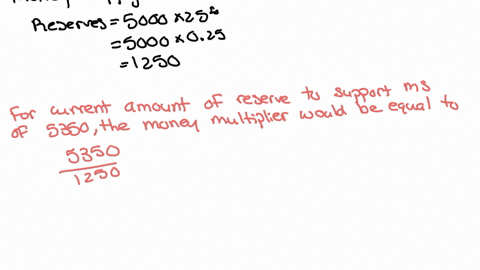 Reserves = 5000 × 25%
= 5000 × 0.25
= 1250
For current amount of reserve to support ms
of 5350, the money multiplier would be equal to
5350
1250